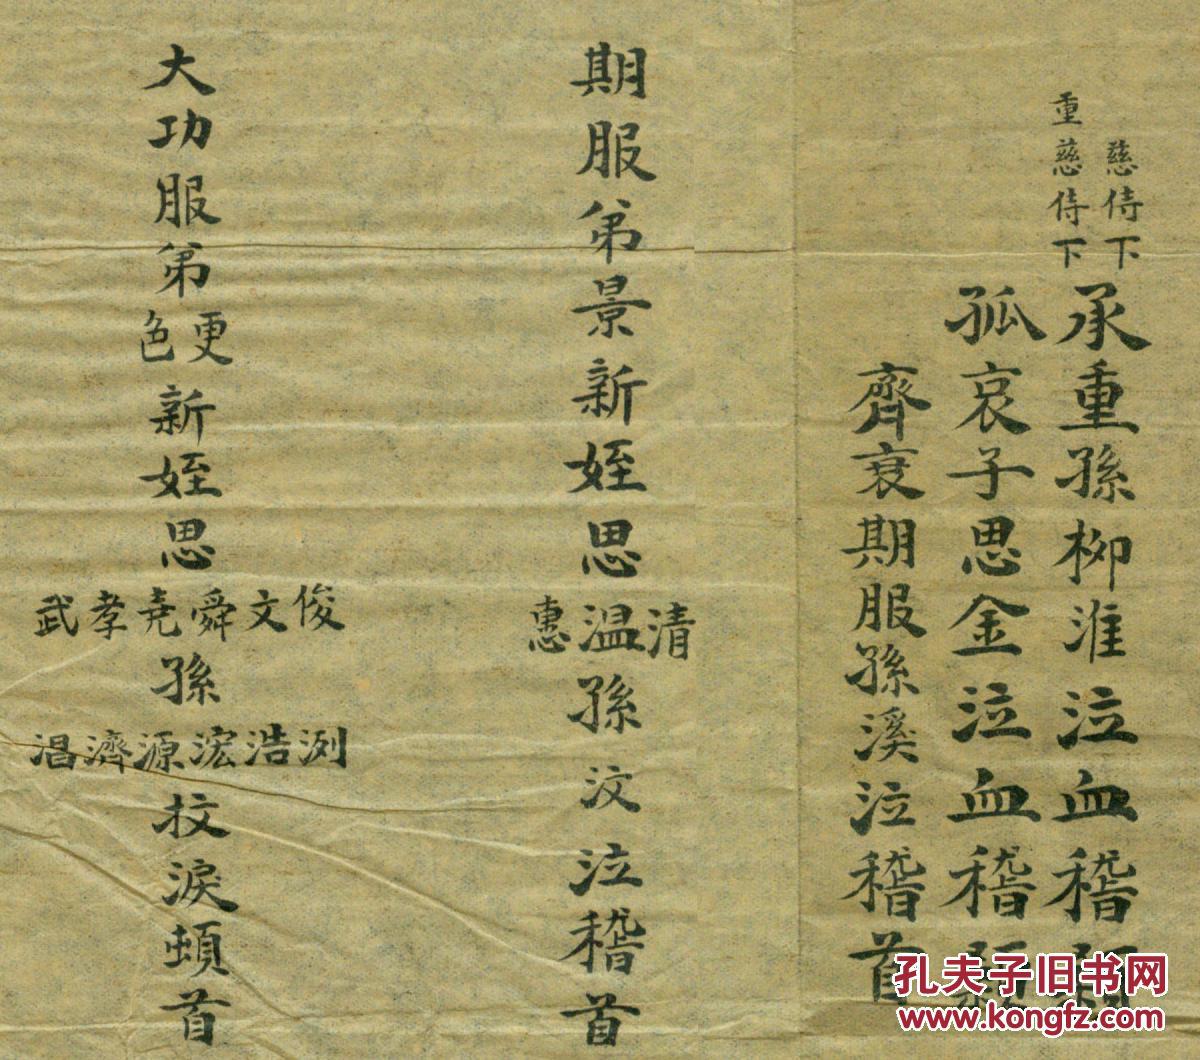 慈侍下
重慈侍下
承重孫柳淮泣血稽顙
孤哀子思金泣血稽顙
齊衰期服孫溪泣稽首
期服弟景新姪思
清溫惠
孫汶泣稽首
大功服弟
更色
新姪思
俊文舜堯孝武
孫
洌浩浤源濟淐
抆淚頓首
孔夫子旧书网
www.kongfz.com